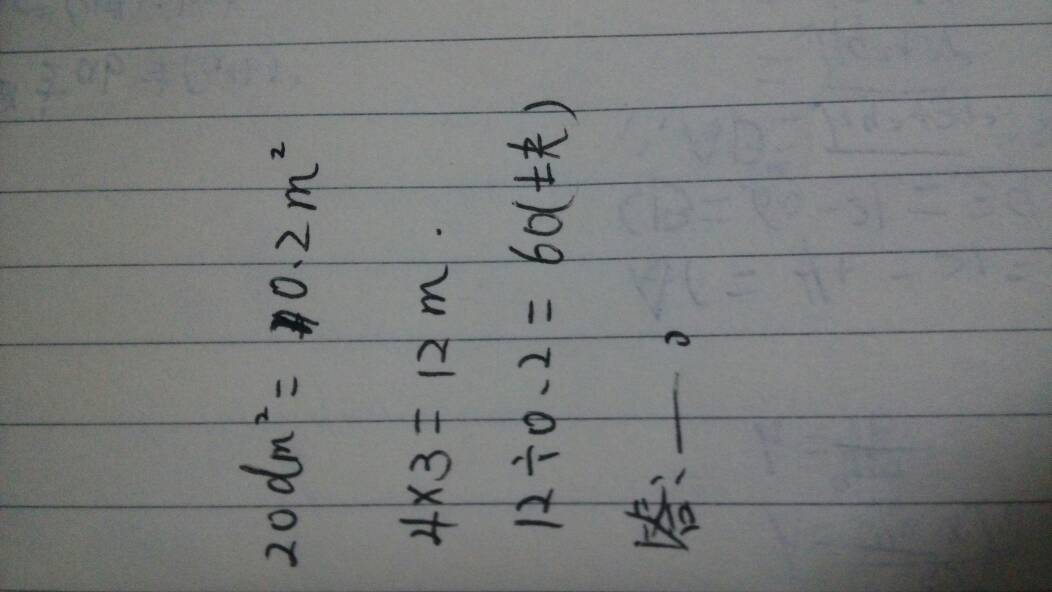 20dm²=0.2m²
4×3=12m.
12÷0.2=60(块)
答:——。